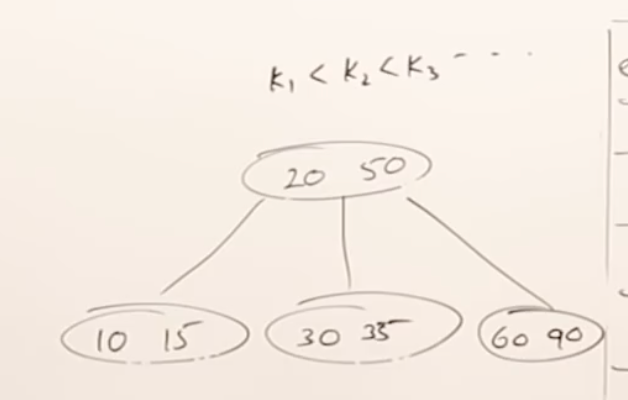 K₁ < K₂ < K₃ - - - .
20 50
10 15
30 35
60 90